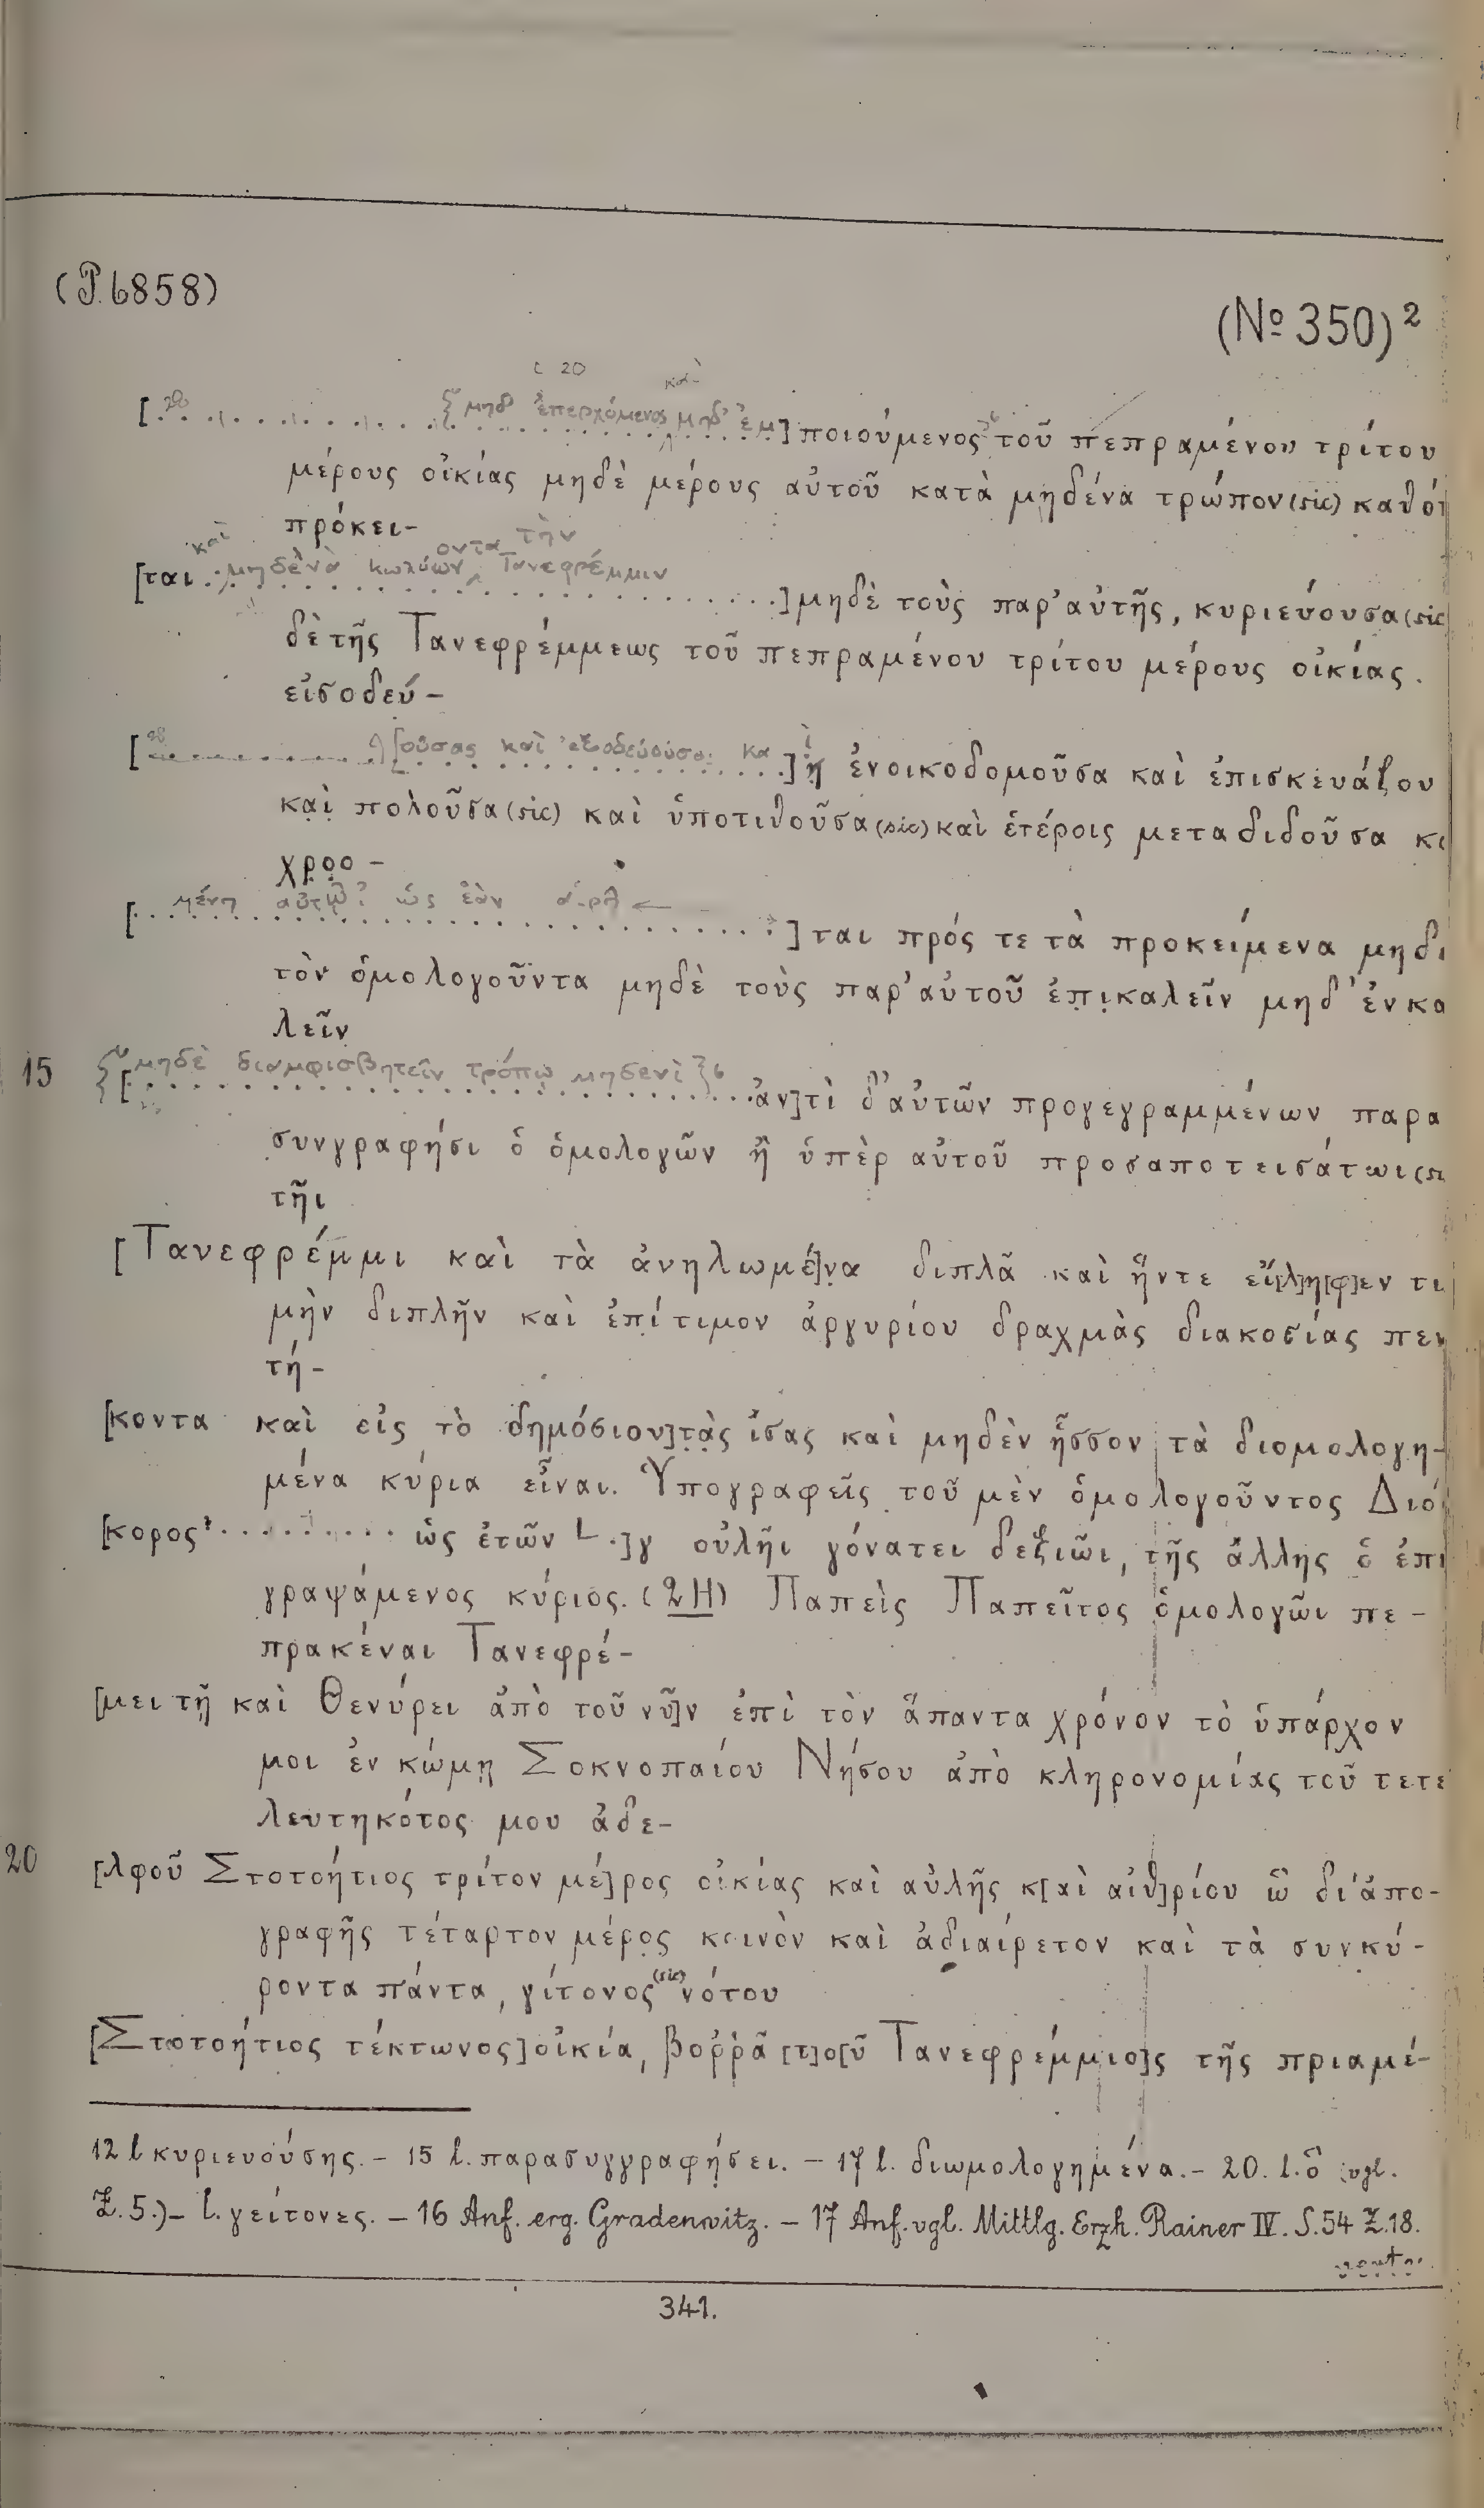 (P. 6858)
(№ 350)²
[. . . . . . . . . . μηδ' ἐπερχόμενος μηδ' ἐμ]ποιούμενος τοῦ πεπραμένου τρίτου
μέρους οἰκίας μηδὲ μέρους αὐτοῦ κατὰ μηδένα τρώπον (sic) καθό
πρόκει-
καὶ οντα τὴν
[ται . μηδένα κωλύων Τανεφρέμμιν . . . .] μηδὲ τοὺς παρ' αὐτῆς, κυριεύουσα (sic
δὲ τῆς Τανεφρέμμεως τοῦ πεπραμένου τρίτου μέρους οἰκίας.
εἰσοδεύ-
[. . . . . . . . . ούσας καὶ ἐξοδεύουσα κα] ἠ ἐνοικοδομοῦσα καὶ ἐπισκευάζου
καὶ πολοῦσα (sic) καὶ ὑποτιθοῦσα (sic) καὶ ἑτέροις μεταδιδοῦσα κ
χρο̣ο-
[. . μένη αὐτῷ ὡς ἐὰν αἱρῆ . . . . . .] ται πρός τε τὰ προκείμενα μηδ
τὸν ὁμολογοῦντα μηδὲ τοὺς παρ' αὐτοῦ ἐπικαλεῖν μηδ' ἐνκα
λεῖν
15 [μηδὲ διαμφισβητεῖν τρόπῳ μηδενὶ . . . ἀν]τὶ δ' αὐτῶν προγεγραμμένων παρα
συνγραφήσι ὁ ὁμολογῶν ἢ ὑπὲρ αὐτοῦ προσαποτεισάτωι (s
τῆι
[Τανεφρέμμι καὶ τὰ ἀνηλωμέ]να διπλᾶ καὶ ἥντε εἴ[λ]η[φ]εν τι
μὴν διπλῆν καὶ ἐπίτιμον ἀργυρίου δραχμὰς διακοσίας πεν
τή-
[κοντα καὶ εἰς τὸ δημόσιον] τὰς ἴσας καὶ μηδὲν ἧσσον τὰ διομολογη-
μένα κύρια εἶναι. Ὑπογραφεῖς τοῦ μὲν ὁμολογοῦντος Διό
[κορος . . . . . . . . . . ὡς ἐτῶν L .]γ οὐλῆι γόνατει δεξιῶι, τῆς ἄλλης ὁ ἐπι
γραψάμενος κύριος. (2 H) Παπεὶς Παπεῖτος ὁμολογῶι πε-
πρακέναι Τανεφρέ-
[μει τῇ καὶ Θενύρει ἀπὸ τοῦ νῦ]ν ἐπὶ τὸν ἅπαντα χρόνον τὸ ὑπάρχον
μοι ἐν κώμῃ Σοκνοπαίου Νήσου ἀπὸ κληρονομίας τοῦ τετε
λευτηκότος μου ἀδε-
20 [λφοῦ Στοτοήτιος τρίτον μέ]ρος οἰκίας καὶ αὐλῆς κ[αὶ αἰθ]ρίου ὣ δι' ἀπο-
γραφῆς τέταρτον μέρος κοινὸν καὶ ἀδιαίρετον καὶ τὰ συνκύ-
ροντα πάντα, γίτονος (sic) νότου
[Στοτοήτιος τέκτωνος] οἰκία, βορρᾶ [τ]ο[ῦ Τανεφρέμμιο]ς τῆς πριαμέ-
12 l κυριευούσης. – 15 l. παρασυγγραφήσει. – 17 l. διωμολογημένα. – 20. l. ὃ (vgl.
Z. 5.) – l. γείτονες. – 16 Anf. erg. Gradenwitz. – 17 Anf. vgl. Mittlg. Erzh. Rainer IV. S. 54 Z. 18.
341.